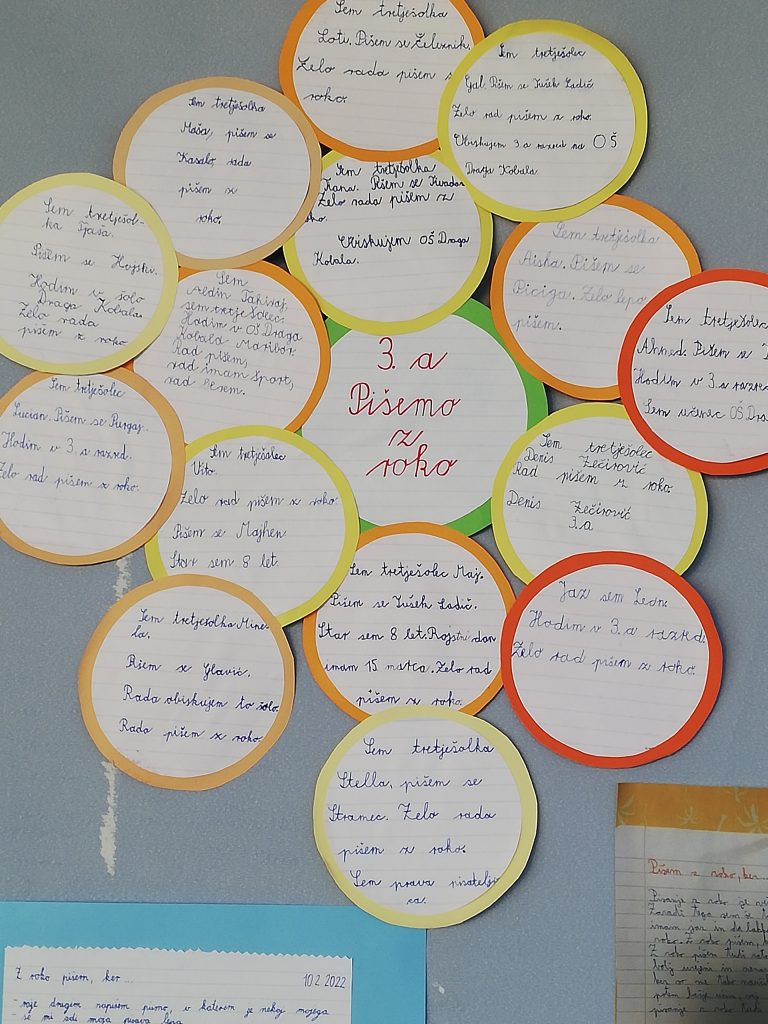 Sem tretješolka
Loti. Pišem se Železnik.
Zelo rada pišem z
roko.
Sem tretješolec
Gal. Pišem se Tušek Ladič.
Zelo rad pišem z roko.
Obiskujem 3. a razred na OŠ
Draga Kobala
Sem tretješolka
Maša, pišem se
Kasalo, rada
pišem z
roko.
Sem tretješolka
Kana. Pišem se
Zelo rada pišem z
roko.
Obiskujem OŠ Draga
Kobala.
Sem tretješol-
ka Tjaša.
Pišem se
Hodim v šolo
Draga Kobala
Zelo rada
pišem z roko
Sem tretješolka
Aisha. Pišem se
Piciga. Zelo lepo
pišem.
Sem
Aldin
sem tretješolec.
Hodim v OŠ Draga
Kobala Maribor.
Rad pišem,
rad imam šport,
rad berem.
Sem tretješolec
Ahmed. Pišem se
Hodim v 3. a razred
Sem učenec OŠ Dra
3. a
Pišemo
z
roko
Sem tretješolec
Lucian. Pišem se
Hodim v 3. a razred.
Zelo rad pišem z roko.
Sem tretješolec
Denis Zečirović
Rad pišem z roko
Denis Zečirović
3. a
Sem tretješolec
Vito.
Zelo rad pišem z roko.
Pišem se Majhen
Star sem 8 let.
Sem tretješolec Maj.
Pišem se Tušek Ladič.
Star sem 8 let. Rojstni dan
imam 15 marca. Zelo rad
pišem z roko.
Jaz sem Leon.
Hodim v 3. a razred.
Zelo rad pišem z roko.
Sem tretješolka Mine-
la.
Pišem se Glavić.
Rada obiskujem to šolo.
Rada pišem z roko.
Sem tretješolka
Stella, pišem se
Stramec. Zelo rada
pišem z roko.
Sem prava pisatelji-
ca.
Pišem z roko, ker...
Z roko pišem, ker ... 10.2.2022